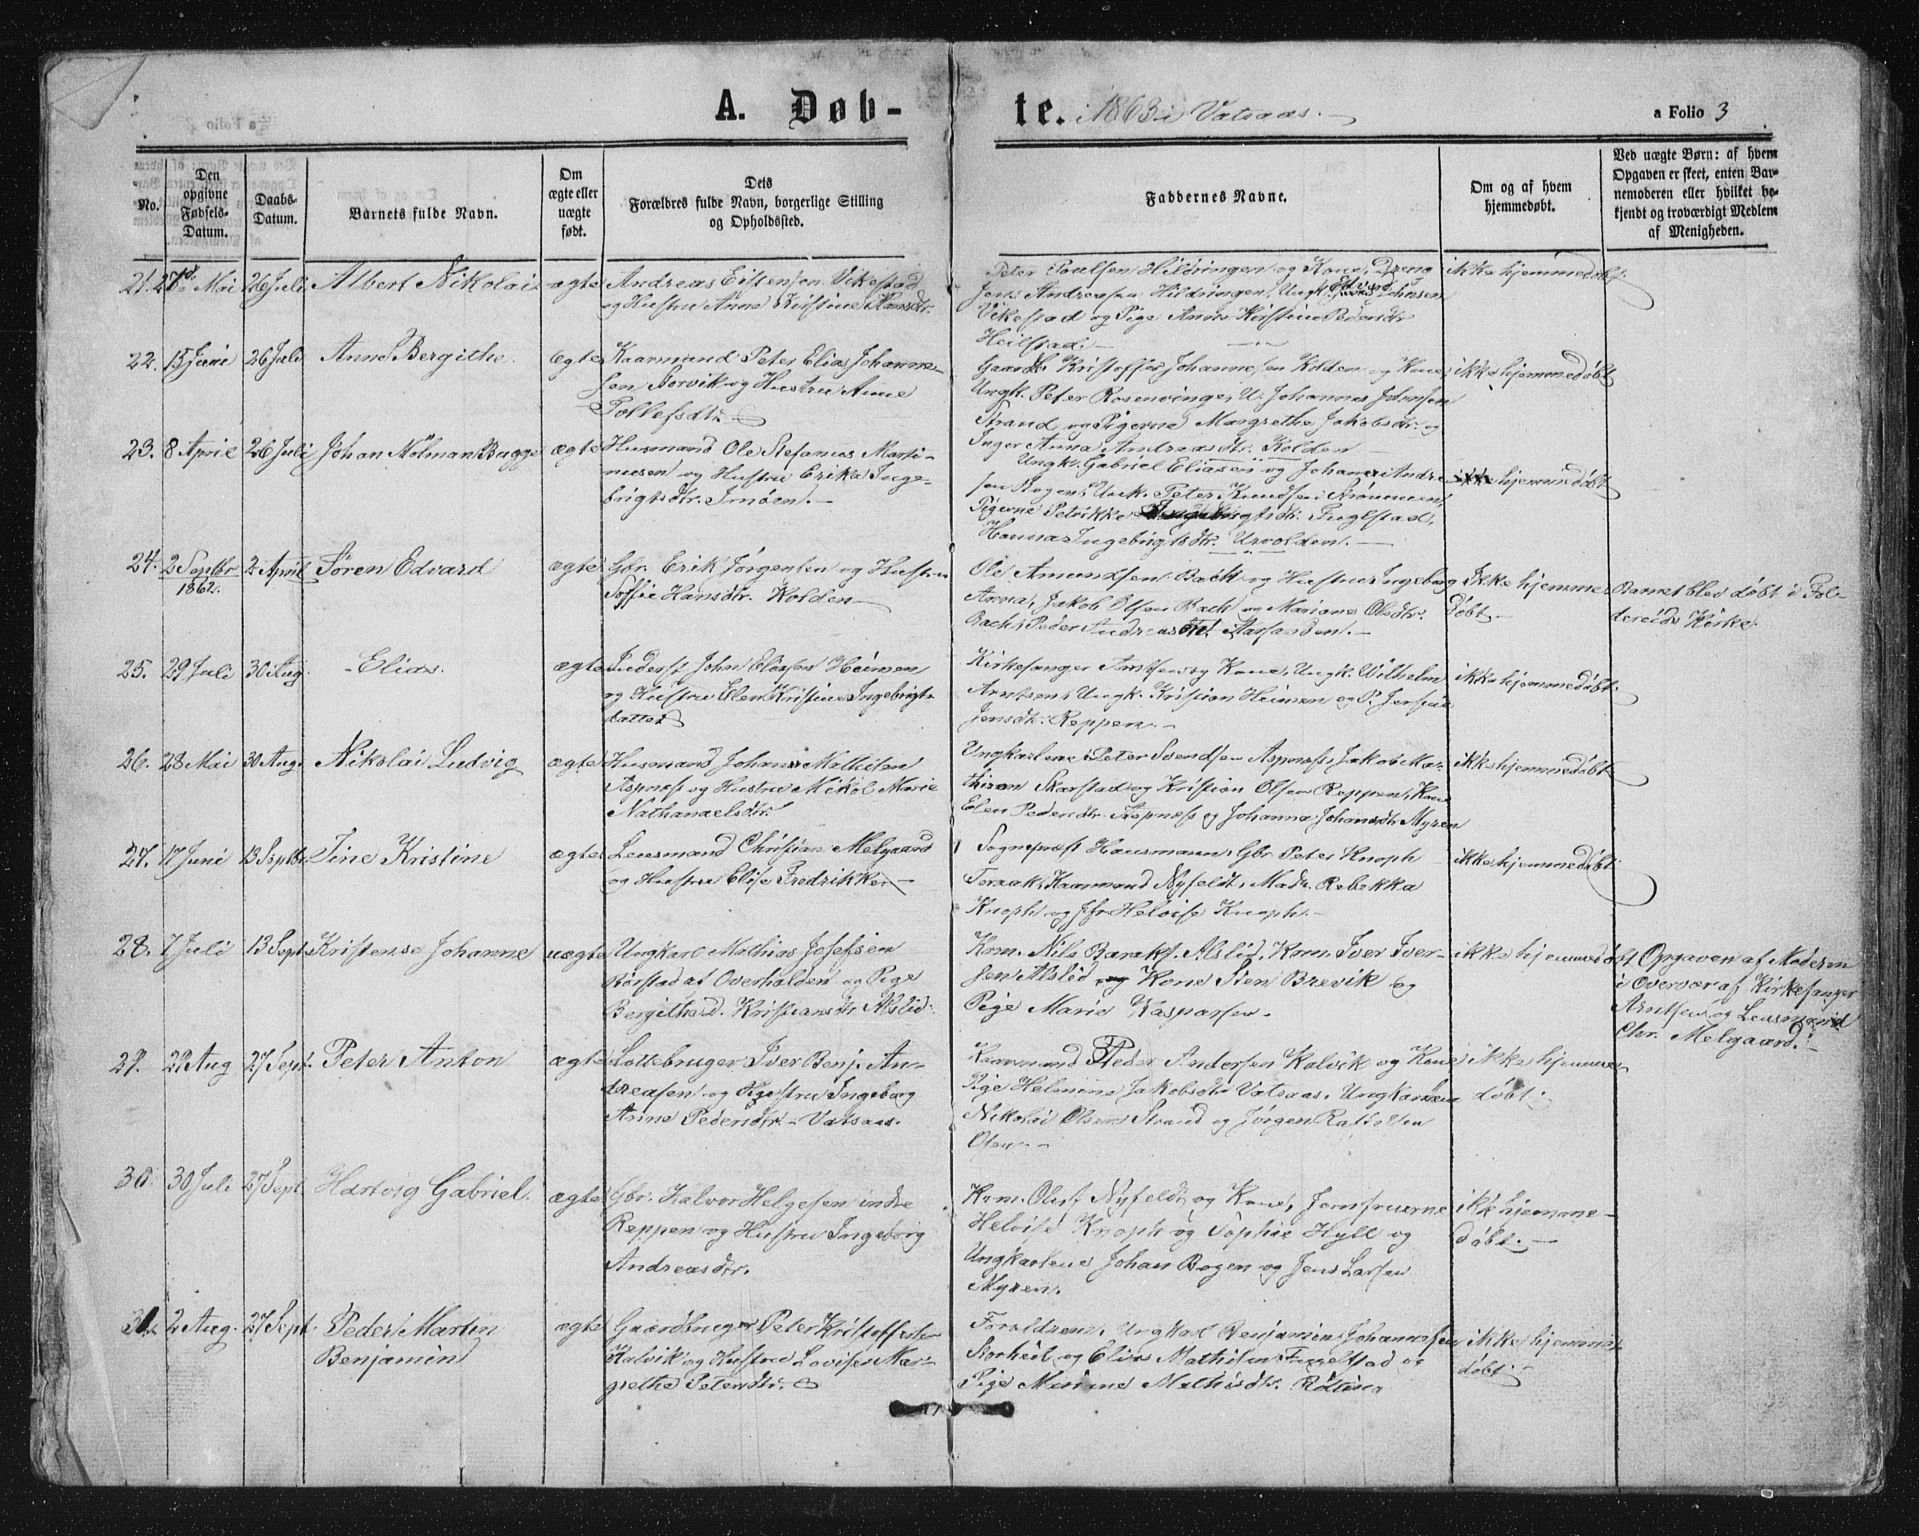 A. Døb-
te. 1863 i Vatsaas.
a Folio 3
No.
Den opgivne Fødsels-Datum.
Daabs-Datum.
Barnets fulde Navn.
Om ægte eller uægte født.
Dets Forældres fulde Navn, borgerlige Stilling og Opholdssted.
Faddernes Navne.
Om og af hvem hjemmedøbt.
Ved uægte Børn: af hvem Opgaven er skeet, enten Barnemoderen eller hvilket bekjendt og troværdigt Medlem af Menigheden.
21. 27de Mai 26 Juli Albert Nikolai ægte Andreas Vikestad
og Hustru Anne Kristine Hansdtr.
Peter Poulsen Hildringen og Kone, Dreng
Jens Andreasen Hildringen, Ungk. Johnsen
Vikestad og Pige Anne Kirstine Pedersdtr
Heilstad.
ikke hjemmedøbt.
22. 15 Juni 26 Juli Anne Bergithe ægte Kaarmand Peter Elias Johanne-
sen Sorvik og Hustru Anne
Tollefsdtr.
Gaardb. Kristoffer Johannesen Kolden og Kone,
Ungk. Peter Rosenvinge, U. Johannes Jensen
Strand og Pigerne Margrethe Jakobsdtr. og
Inger Anna Andreasdtr. Kolden
ikke hjemmedøbt
23. 8 April 26 Juli Johan Nolman Bugge ægte Husmand Ole Stefanus Marti-
nusen og Hustru Erika Inge-
brigtsdtr. Imøen.
Ungk. Gabriel Eliasen og Johan Andrea-
sen Bogen, Ungk. Peter Knudsen
Pigerne Petrikke Fuglstad,
Hanna Ingebrigtsdtr. Urvolden.
ikke hjemmedøbt
24. 2 Septbr 1862. 2 April Søren Edvard ægte Gbr. Erik Jørgensen og Hustru
Soffie Hansdtr. Kolden
Ole Amundsen Bach og Hustru Ingeborg
Anna, Jakob Olsen Bach og Mariane Olesdtr.
Bach, Peder Andreas Aarsanden.
Ikke hjemme-
døbt
Barnet blev døbt i Fol-
dereids Kirke.
25. 29 Juli 30 Aug. Elias ægte Inderst John Eliasen Heimen
og Hustru Elen Kristine Ingebrigts-
datter
Kirkesanger Arntsen og Kone, Ungk. Wilhelm
Arntsen, Ungk. Kristian Heimen og P. Jersine
Jensdtr. Reppen.
ikke hjemmedøbt
26. 28 Mai 30 Aug. Nikolai Ludvig ægte Husmand Johan Mathisen
Aspnæs og Hustru Mikol Marie
Nathanaelsdtr.
Ungkarlene Peter Svendsen Aspnæs, Jakob Ma-
thisen Skarstad og Kristian Olsen Reppen, Kone
Elen Pedersdtr. Aspnæs og Johanna Johansdtr Myren
ikke hjemmedøbt
27. 17 Juni 13 Septbr. Tine Kristine ægte Lensmand Christian Melgaard
og Hustru Elise Fredrikke
Sogneprest Hausmann, Gbr. Peter Knoph
Teraak, Kaarmand Nyfeldt, Mad. Rebekka
Knoph og Jfr Heloise Knoph.
ikke hjemmedøbt
28. 7 Juli 13 Sept. Kristense Johanne uægte Ungkarl Mathias Josefsen
Rørstad af Overhalden og Pige
Bergitha D. Kristiansdtr Alslid.
Krm. Nils Baraks. Alslid, Krm. Iver Iver-
sen Alslid og Kone Sten Brevik og
Pige Marie Kasparsen.
ikke hjemmedøbt
Opgaven af Moderen
i Overvær af Kirkesanger
Arntsen og Lensmand
Chr. Melgaard.
29. 22 Aug 27 Sept. Peter Anton ægte Lottebruger Iver Benj. An-
dreasen og Hustru Ingeborg
Anne Pedersdtr. Vatsaas.
Kaarmand Peder Andersen Kalvik og Kone
Pige Helmine Jakobsdtr Vatsaas, Ungkarlene
Nikolai Olsen Strand og Jørgen
Olsen
ikke hjemme-
døbt.
30. 30 Juli 27 Sept. Hartvig Gabriel. ægte Gbr. Halvor Helgesen indre
Reppen og Hustru Ingeborg
Andreasdtr.
Krm. Oluf Nyfeldt og Kone, Jomfruerne
Heloise Knoph og Sophie Hyll og
Ungkarlene Johan Bogen og Jens Larsen
Myren.
ikke hjemme-
døbt.
31. 2 Aug. 27 Sept. Peder Martin
Benjamin
ægte Gaardbruger Peter Kristoffersen
Kalvik og Hustru Lovise Mar-
grethe Petersdtr.
Forældrene, Ungkarl Benjamin Johannesen
Storheil og Elias Mathisen Fuglstad og
Pige Mariane Mathisdtr.
ikke hjemme-
døbt